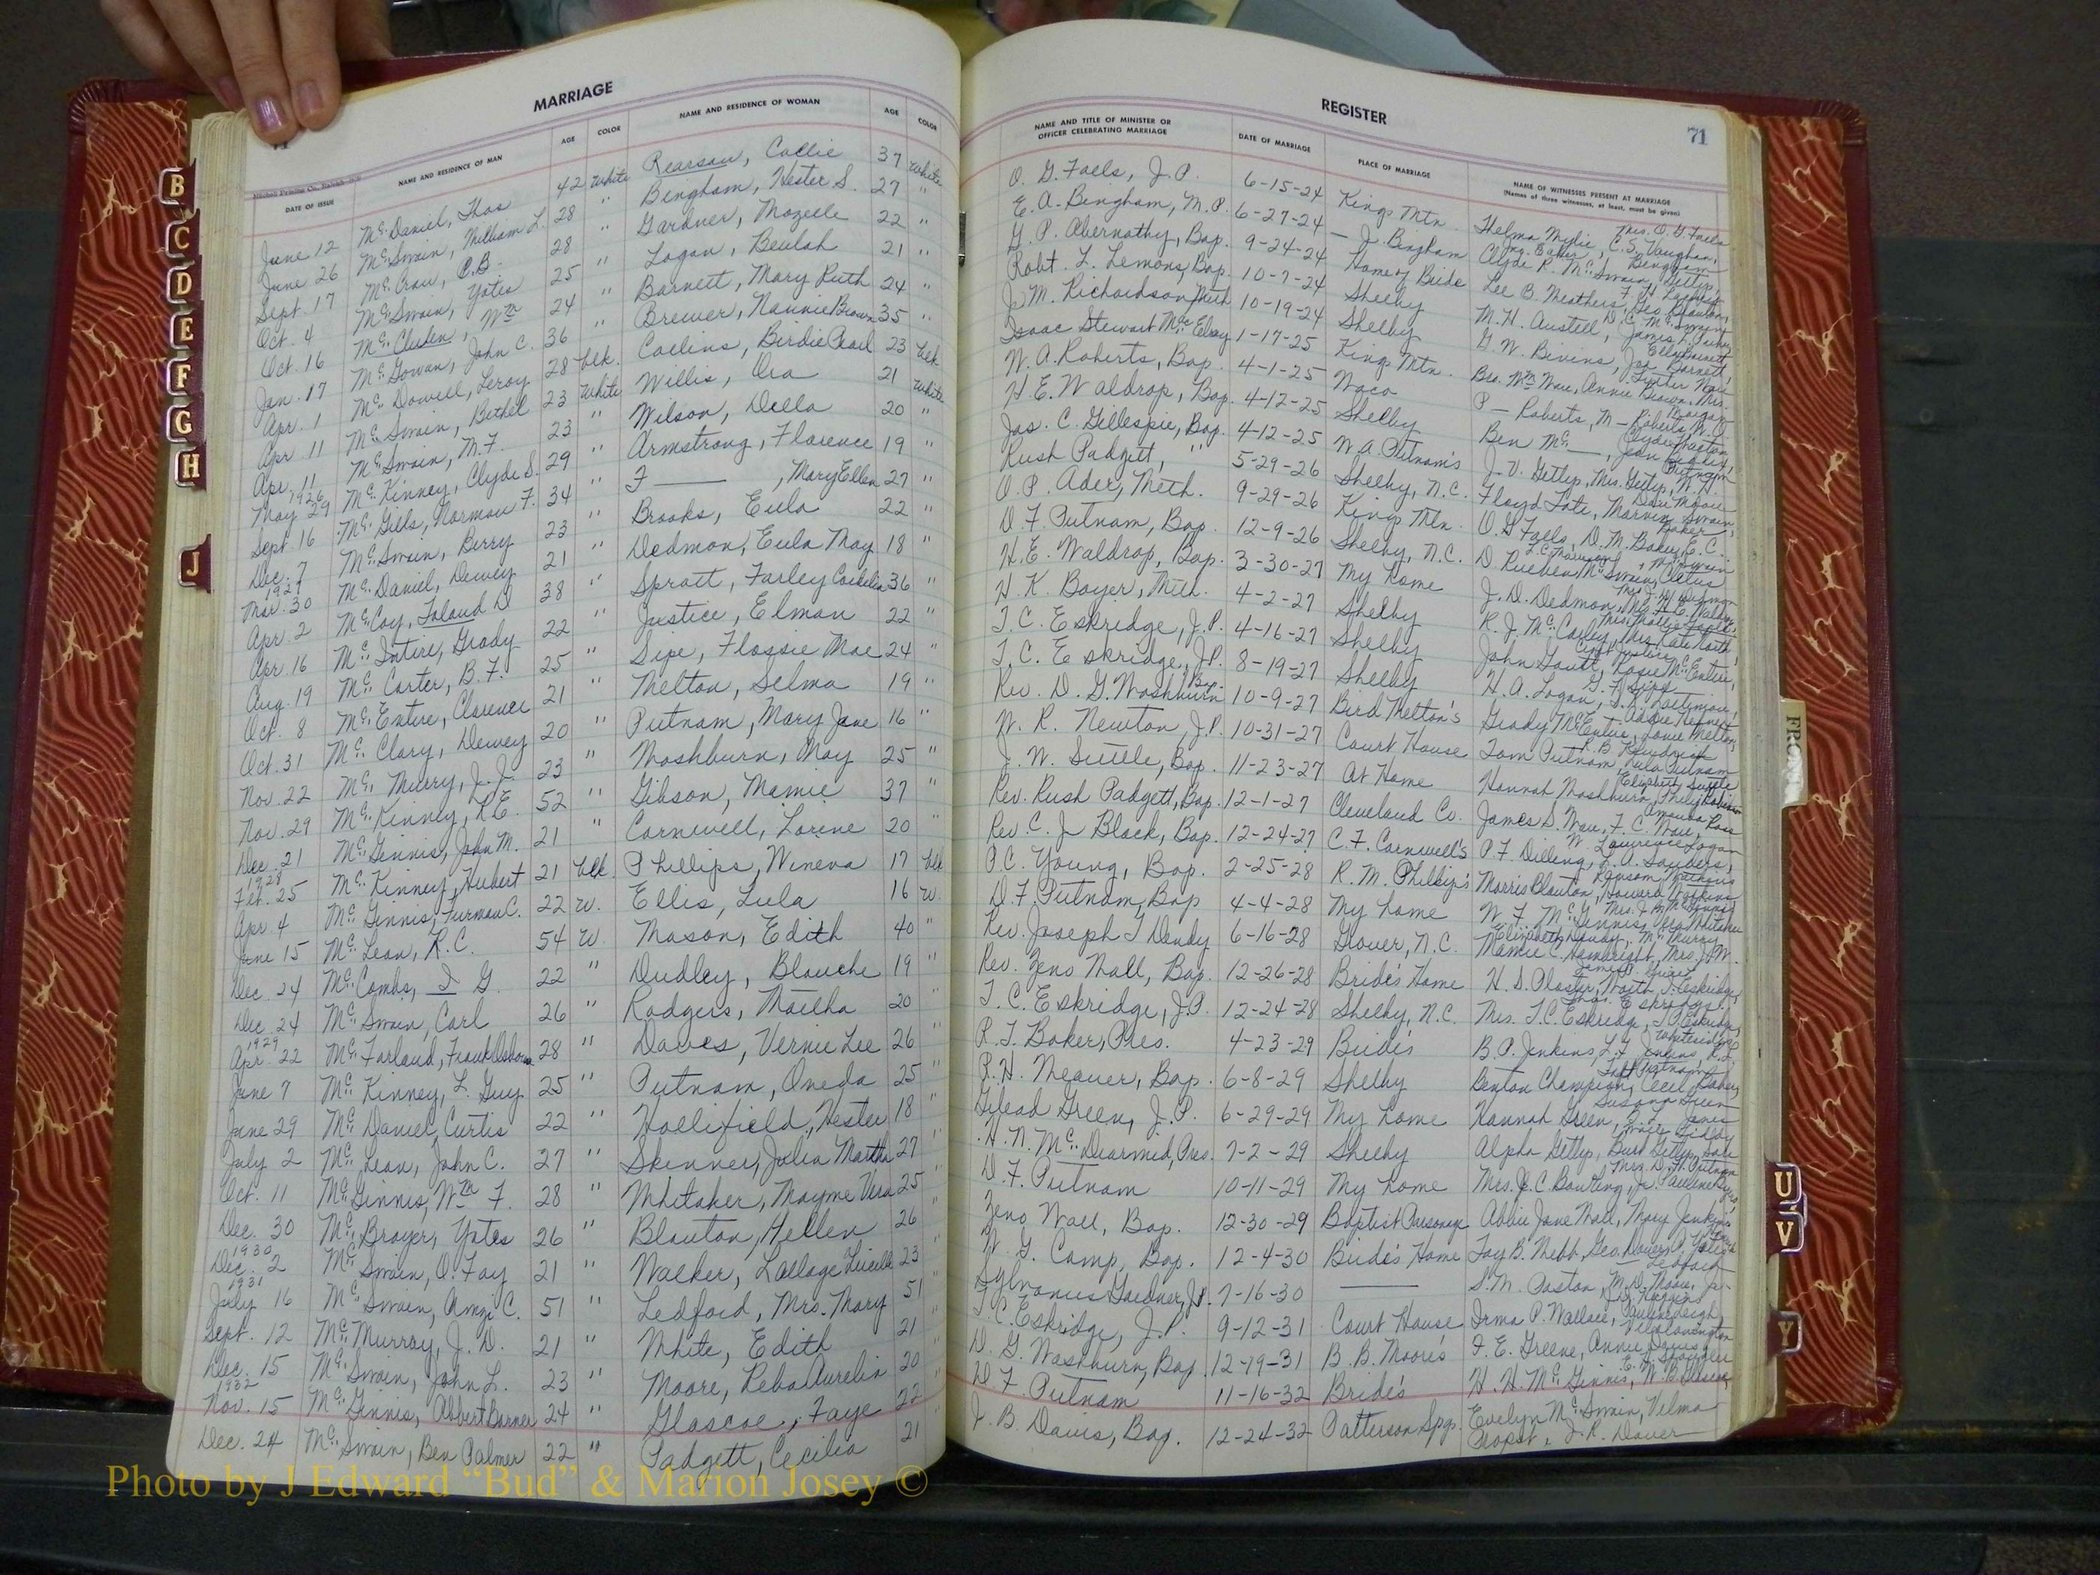 MARRIAGE
DATE OF ISSUE NAME AND RESIDENCE OF MAN AGE COLOR NAME AND RESIDENCE OF WOMAN AGE COLOR
June 12 McDaniel, Thos 42 White Rearsaw, Callie 37 White
June 26 McSwain, William L. 28 " Bengham, Hester S. 27 "
Sept. 17 McCraw, C.B. 28 " Gardner, Mozelle 22 "
Oct. 4 McSwain, Yates 25 " Logan, Beulah 21 "
Oct. 16 Wm 24 " Barnett, Mary Ruth 24 "
Jan. 17 McGowan, John C. 36 " Brewer, Nannie Brown 35 "
Apr. 1 McDowell, Leroy 28 blk. Collins, Birdie Pearl 23 blk
Apr 11 McSwain, Bethel 23 White Willis, Ora 21 White
Apr. 11 McSwain, M.F. 23 " Wilson, Della 20 "
1926
May 29 McKinney, Clyde S. 29 " Armstrong, Florence 19 "
Sept. 16 McGills, Norman F. 34 " F—, Mary Ellen 27 "
Dec. 7 McSwain, Berry 23 " Brooks, Eula 22 "
1927
Mar. 30 McDaniel, Dewey 21 " Dedmon, Eula May 18 "
Apr. 2 McCoy, D 38 " Spratt, Farley 36 "
Apr. 16 McIntire, Grady 22 " Justice, Elman 22 "
Aug. 19 McCarter, B.F. 25 " Sipe, Flossie Mae 24 "
Oct. 8 McEntire, Clarence 21 " Melton, Selma 19 "
Oct. 31 McClary, Dewey 20 " Putnam, Mary Jane 16 "
Nov. 22 McMurry, J.J. 23 " Mashburn, May 25 "
Nov. 29 McKinney, R.E. 52 " Gibson, Mamie 37 "
Dec. 21 McGinnis, John M. 21 " Cornwell, Lorene 20 "
1928
Feb. 25 McKinney, Hubert 21 blk. Phillips, Wineva 17 blk
Apr. 4 McGinnis, Furman C. 22 W. Ellis, Lula 16 W.
June 15 McLean, R.C. 54 W Mason, Edith 40 "
Dec. 24 McCombs, I G. 22 " Dudley, Blanche 19 "
Dec. 24 McSwain, Carl 26 " Rodgers, Martha 20 "
1929
Apr. 22 McFarland, Frank Osborne 28 " Daves, Vernie Lee 26 "
June 7 McKinney, L. Guy 25 " Putnam, Oneda 25 "
June 29 McDaniel, Curtis 22 " Hollifield, Hester 18 "
July 2 McLean, John C. 27 " Skinner, Julia Martha 27 "
Oct. 11 McGinnis, Wm F. 28 " Whitaker, Mayme Vera 25 "
Dec. 30 McBrayer, Yates 26 " Blanton, Hellen 26 "
1930
Dec. 2 McSwain, O. Fay 21 " Walker, Lallage Lucille 23 "
1931
July 16 McSwain, Amzi C. 51 " Ledford, Mrs. Mary 51 "
Sept. 12 McMurray, J. D. 21 " White, Edith 21 "
Dec. 15 McSwain, John L. 23 " Moore, Reba Aurelia 20 "
1932
Nov. 15 McGinnis, Abbert 24 " Glascoe, Faye 22 "
Dec. 24 McSwain, Ben Palmer 22 " Padgett, Cecilia 21 "
REGISTER 71
NAME AND TITLE OF MINISTER OR OFFICER CELEBRATING MARRIAGE DATE OF MARRIAGE PLACE OF MARRIAGE NAME OF WITNESSES PRESENT AT MARRIAGE
(Names of three witnesses, at least, must be given)
O. G. Falls, J.P. 6-15-24 Kings Mtn. Thelma Mrs. O. G. Falls
E. A. Bengham, M.P. 6-27-24 — J. Bengham C. S. Vaughan, Bengham
G. P. Abernathy, Bap. 9-24-24 Home of Bride Clyde R. McSwain
Robt. L. Lemons, Bap. 10-7-24 Shelby Lee B. Weathers, Geo Blanton, D.C. McSwain
J. M. Richardson, Meth 10-19-24 Shelby M. H. Austell, James L.
Isaac Stewart McElroy 1-17-25 Kings Mtn. G. W. Bivens, Jas Barnett
W. A. Roberts, Bap. 4-1-25 Waco Annie Brown, Mrs.
H. E. Waldrop, Bap. 4-12-25 Shelby P— Roberts, M— Roberts, W. O.
Jas. C. Gillespie, Bap. 4-12-25 W. A. Putnam's Ben Mc—
Rush Padgett, " 5-29-26 Shelby, N.C. J. V. Gettys, Mrs. Gettys, W. H.
O. P. Ader, Meth. 9-29-26 Kings Mtn. Floyd Tate, Marvin
D. F. Putnam, Bap. 12-9-26 Shelby, N.C. O. G. Falls, D. M. Baker, E. C.
H. E. Waldrop, Bap. 3-30-27 My home D. Rueben McSwain, Cletus
H. K. Boyer, Meth. 4-2-27 Shelby J. D. Dedmon, Mrs. H. E. Waldrop
T. C. Eskridge, J.P. 4-16-27 Shelby R. J. McCarley, Mrs. Kate Roark,
T. C. Eskridge, J.P. 8-19-27 Shelby John Gantt, Rosie McEntire,
Rev. D. G. Washburn Bap. 10-9-27 Bird Melton's H. A. Logan, S. L. Lattimore,
W. R. Newton, J.P. 10-31-27 Court House Grady McEntire, Louie Melton,
J. W. Suttle, Bap. 11-23-27 At Home Tom Putnam, Lula Putnam
Rev. Rush Padgett, Bap. 12-1-27 Cleveland Co. Hannah Mashburn, Philip
Rev. C. J. Black, Bap. 12-24-27 C. F. Cornwell's James S. Ware, F. C. Ware,
P. C. Young, Bap. 2-25-28 R. M. Phillip's P. F. Dilling, L. A. Sanders,
D. F. Putnam, Bap 4-4-28 My home Morris Blanton, Howard Watkins
Rev. Joseph T Dendy 6-16-28 Grover, N.C. W. F. McGinnis, Vera Whitaker
Rev. Zeno Wall, Bap. 12-26-28 Bride's Home Mamie C. Hambright, Mrs. J. W.
T. C. Eskridge, J.P. 12-24-28 Shelby, N.C. H. S. Plaster, Worth T. Eskridge,
R. T. Baker, Pres. 4-23-29 Brides Mrs. T. C. Eskridge, T. P. Eskridge,
R. H. Weaver, Bap. 6-8-29 Shelby B. P. Jenkins, L. L. Jenkins, R. L.
Gilead Green, J.P. 6-29-29 My home Benton Champion, Cecil
H. N. McDiarmid, Pres. 7-2-29 Shelby Hannah Green,
D. F. Putnam 10-11-29 My home Alpha Gettys, Burt Gettys,
Zeno Wall, Bap. 12-30-29 Baptist Parsonage Mrs. J. C. Bowling, Jr.
W. G. Camp, Bap. 12-4-30 Bride's Home Abbie Jane Wall, Mary Jenkins
Sylvanus Gardner, J.P. 7-16-30 — Fay B. Webb, Geo.
T. C. Eskridge, J.P. 9-12-31 Court House S. M. Poston, M. D.
D. G. Washburn, Bap 12-19-31 B. B. Moore's Irma P. Wallace,
D. F. Putnam 11-16-32 Bride's F. E. Greene, Annie
J. B. Davis, Bap. 12-24-32 Patterson Spgs. H. H. McGinnis,
Evelyn McSwain, Velma
Propst, J. R. Dover
B
C
D
E
F
G
H
J
U
V
Y
Photo by J Edward “Bud” & Marion Josey ©